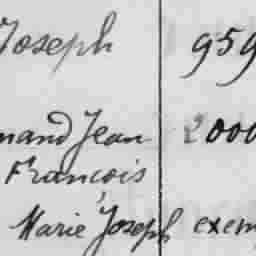 Joseph 959
mand Jean 2000
François
Marie Joseph exem